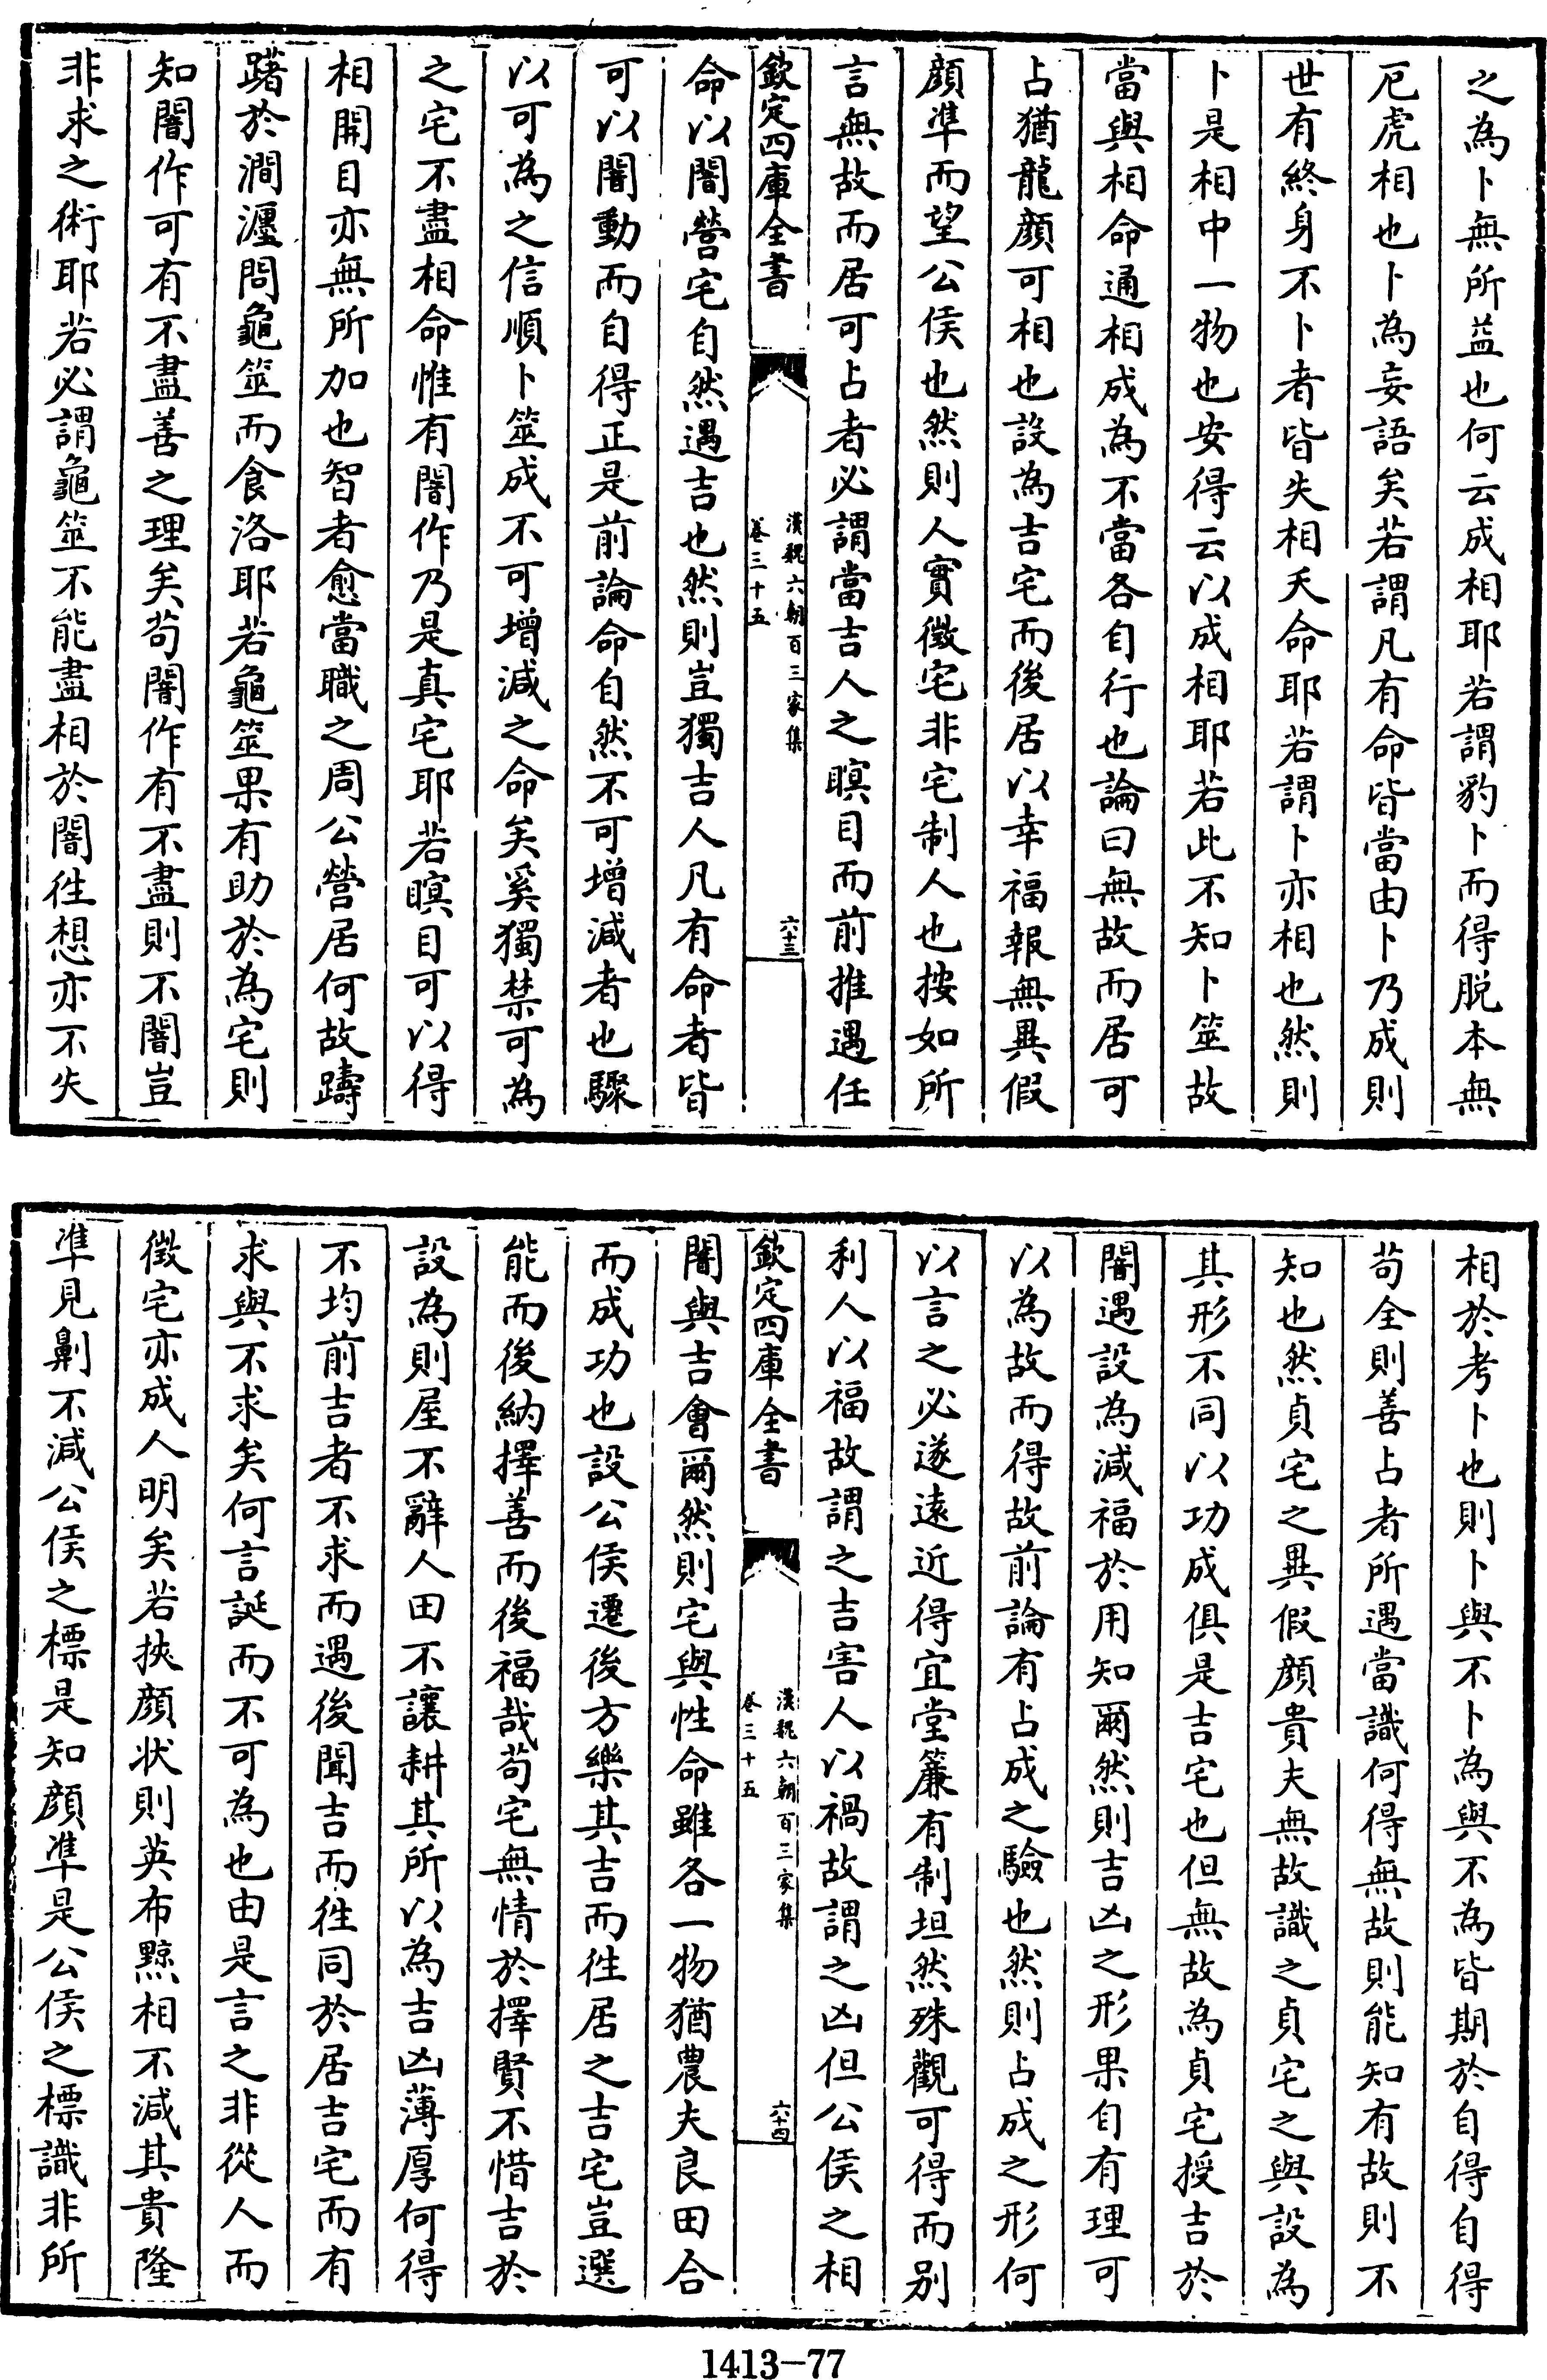 之為卜無所益也何云成相耶若謂豹卜而得脱本無
厄虎相也卜為妄語矣若謂凡有命皆當由卜乃成則
世有終身不卜者皆失相夭命耶若謂卜亦相也然則
卜是相中一物也安得云以成相耶若此不知卜筮故
當與相命通相成為不當各自行也論曰無故而居可
占猶龍顏可相也設為吉宅而後居以幸福報無異假
顏準而望公侯也然則人實徵宅非宅制人也按如所
言無故而居可占者必謂當吉人之瞑目而前推遇任
欽定四庫全書
漢魏六朝百三家集
卷三十五
六十三
命以闇營宅自然遇吉也然則豈獨吉人凡有命者皆
可以闇動而自得正是前論命自然不可增減者也驟
以可為之信順卜筮成不可增減之命矣奚獨禁可為
之宅不盡相命惟有闇作乃是真宅耶若瞑目可以得
相開目亦無所加也智者愈當職之周公營居何故躊
躇於澗瀍問龜筮而食洛耶若龜筮果有助於為宅則
知闇作可有不盡善之理矣苟闇作有不盡則不闇豈
非求之術耶若必謂龜筮不能盡相於闇徃想亦不失
相於考卜也則卜與不卜為與不為皆期於自得自得
苟全則善占者所遇當識何得無故則能知有故則不
知也然貞宅之異假顏貴夫無故識之貞宅之與設為
其形不同以功成俱是吉宅也但無故為貞宅授吉於
闇遇設為減福於用知爾然則吉凶之形果自有理可
以為故而得故前論有占成之驗也然則占成之形何
以言之必遂遠近得宜堂簾有制坦然殊觀可得而别
利人以福故謂之吉害人以禍故謂之凶但公侯之相
欽定四庫全書
漢魏六朝百三家集
卷三十五
六十四
闇與吉會爾然則宅與性命雖各一物猶農夫良田合
而成功也設公侯遷後方樂其吉而徃居之吉宅豈選
能而後納擇善而後福哉苟宅無情於擇賢不惜吉於
設為則屋不辭人田不讓耕其所以為吉凶薄厚何得
不均前吉者不求而遇後聞吉而徃同於居吉宅而有
求與不求矣何言誕而不可為也由是言之非從人而
徵宅亦成人明矣若挾顏狀則英布黥相不減其貴隆
準見劓不減公侯之標是知顏準是公侯之標識非所
1413-77